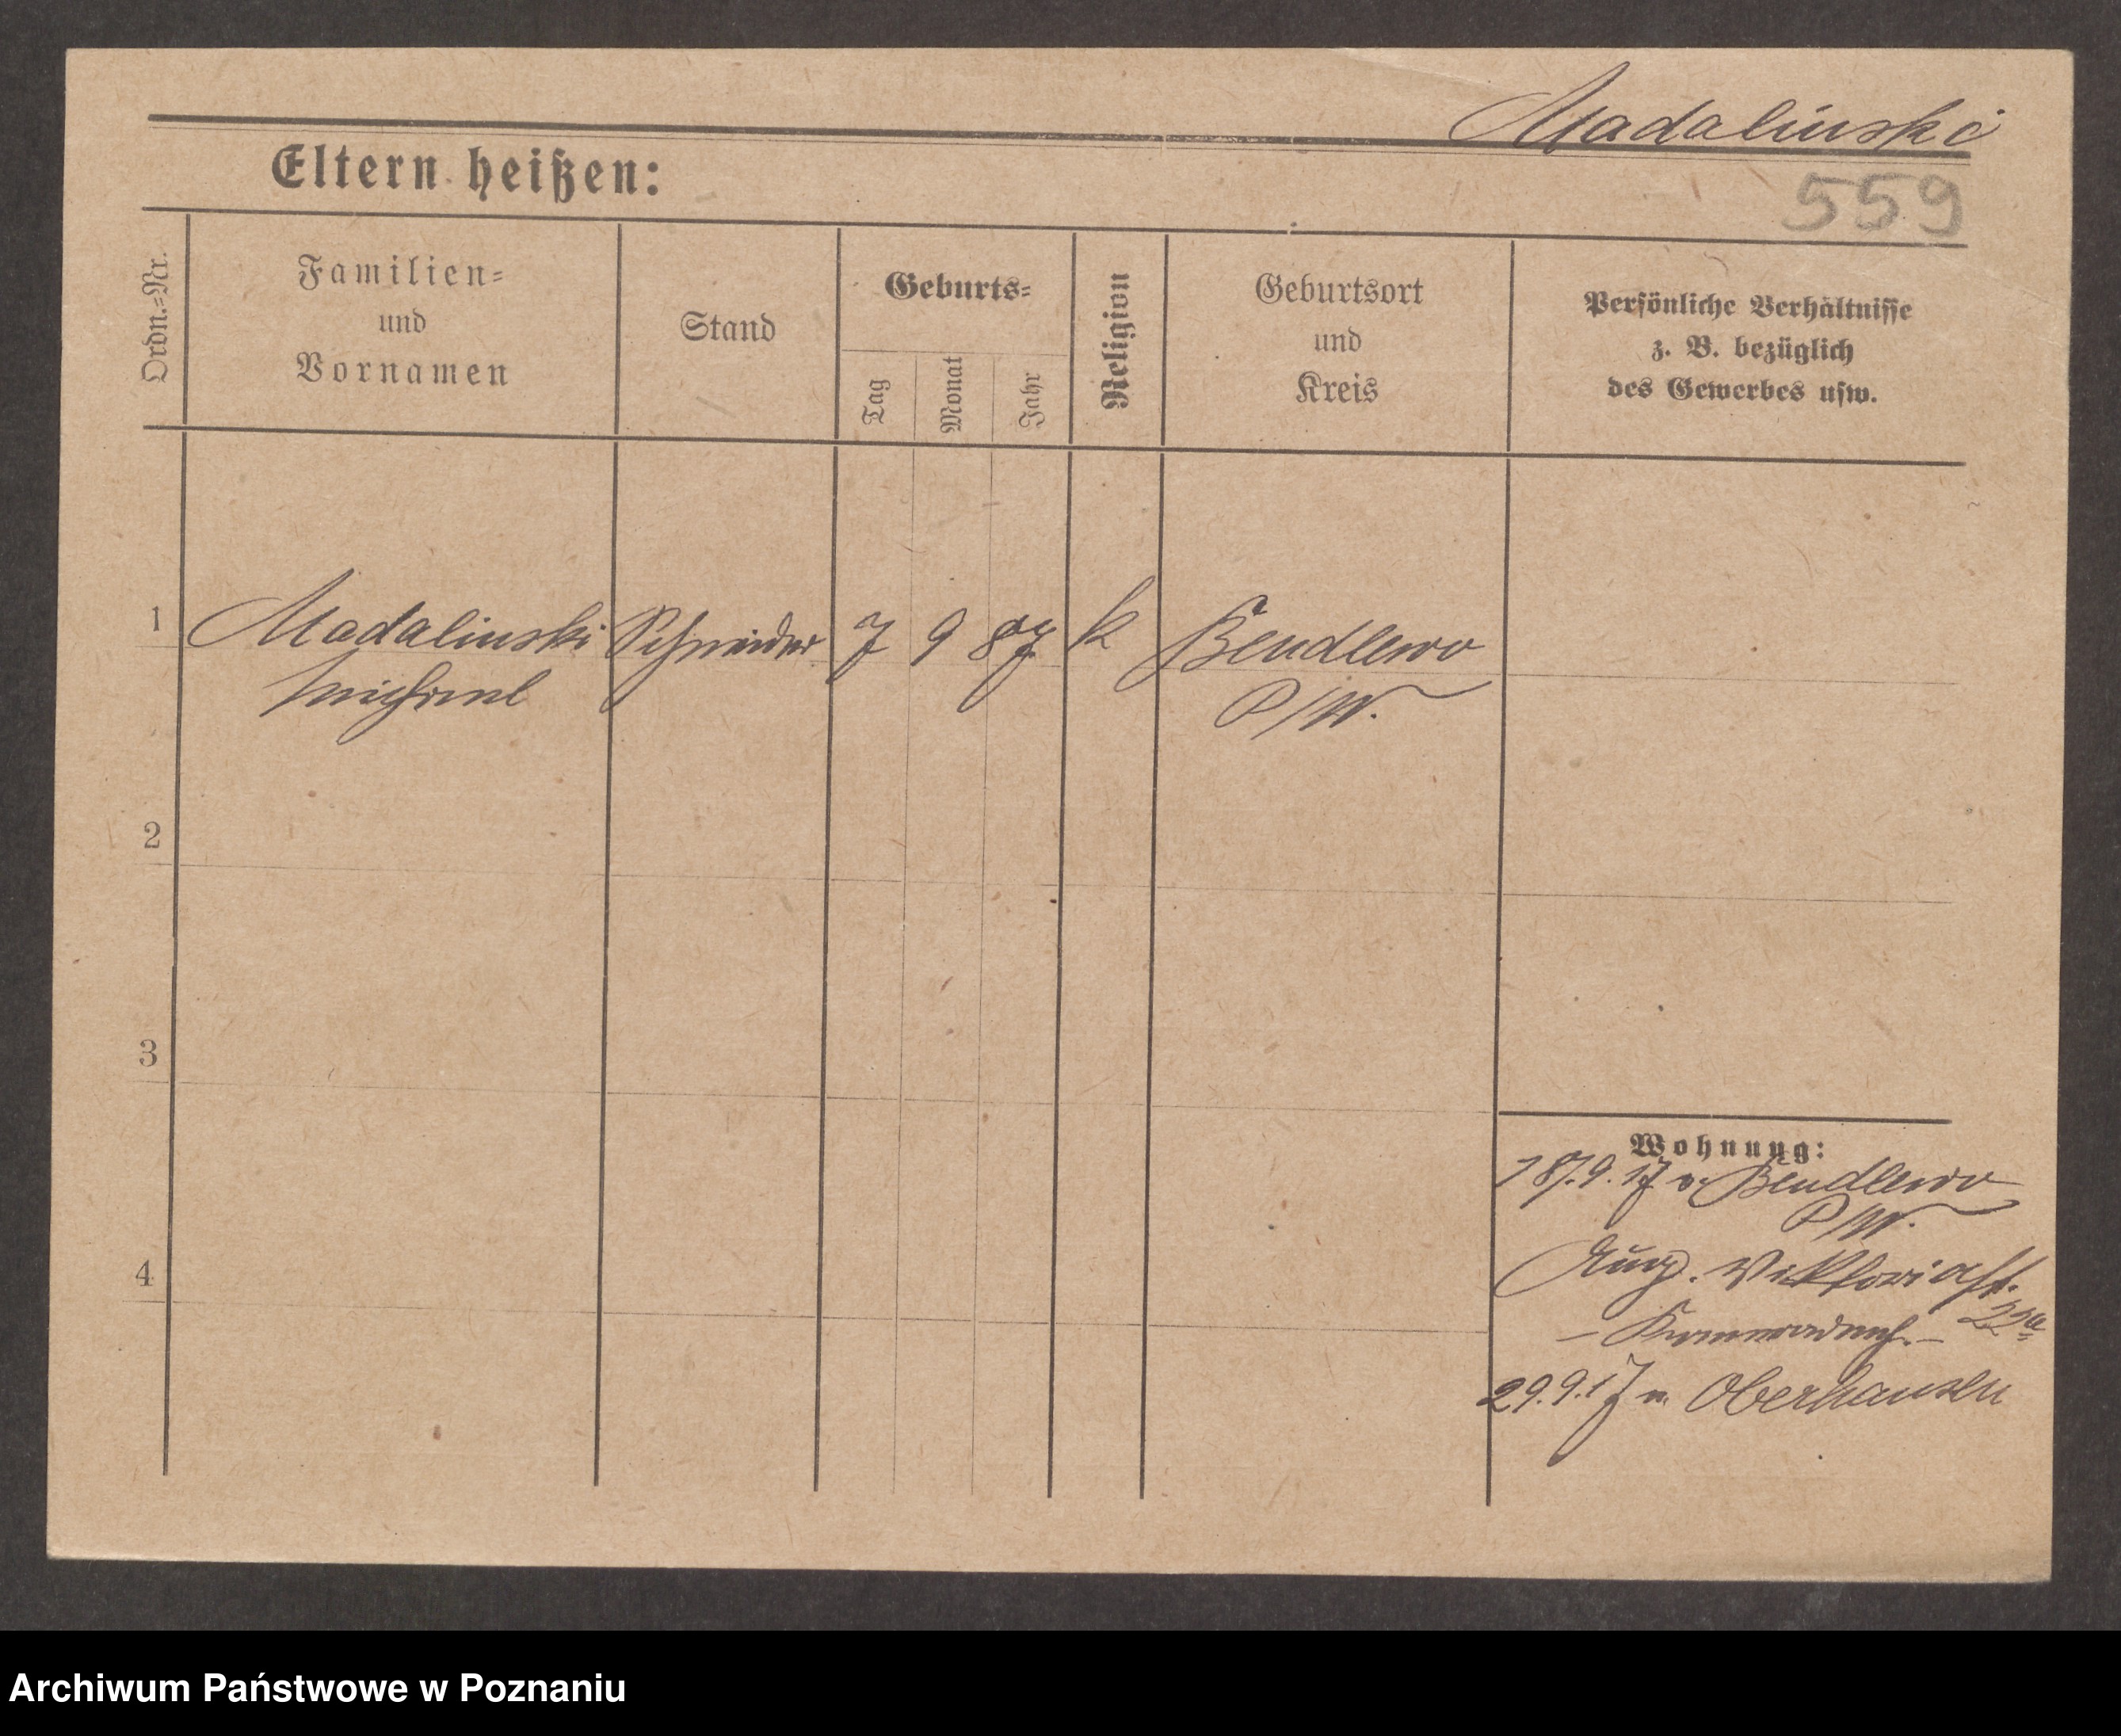 Madalinski
Eltern heißen:
559
Ordn.=Nr.
Familien=
und
Vornamen
Stand
Geburts=
Tag
Monat
Jahr
Religion
Geburtsort
und
Kreis
Persönliche Verhältnisse
z. B. bezüglich
des Gewerbes usw.
1
Madalinski Schneider 7 9 87 k Bendlewo
Michael P/W.
2
3
4
Wohnung:
9. 17 v. Bendlewo
P/W.
Aug. Viktoriastr.
22a
29.9.17 n. Oberhausen
Archiwum Państwowe w Poznaniu